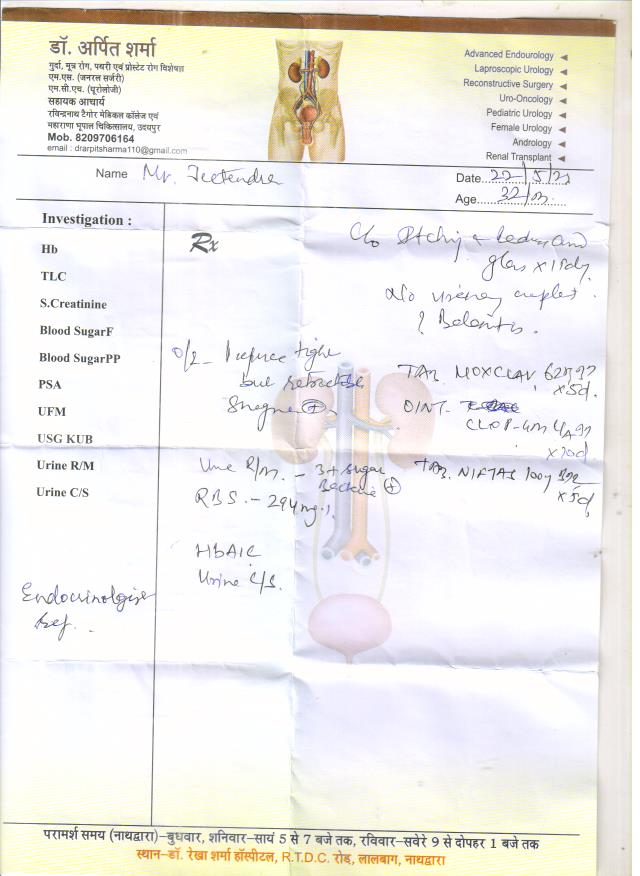 डॉ. अर्पित शर्मा
गुर्दा, मूत्र रोग, पथरी एवं प्रोस्टेट रोग विशेषज्ञ
एम.एस. (जनरल सर्जरी)
एम.सी.एच. (यूरोलोजी)
सहायक आचार्य
रविन्द्रनाथ टैगोर मेडिकल कॉलेज एवं
महाराणा भूपाल चिकित्सालय, उदयपुर
Mob. 8209706164
email : drarpitsharma110@gmail.com
Advanced Endourology
Laproscopic Urology
Reconstructive Surgery
Uro-Oncology
Pediatric Urology
Female Urology
Andrology
Renal Transplant
Name Mr. Jeetendra
Date 22/5/21
Age 32/m
Investigation :
Hb
TLC
S.Creatinine
Blood SugarF
Blood SugarPP
PSA
UFM
USG KUB
Urine R/M
Urine C/S
Endocrinologist
Ref.
Rx
C/o Itching &
glans x 15dy.
No urinary
? Balanitis.
O/E - Prepuce tight
but retractable
+
Urine R/M. - 3+ sugar
Bacteria +
RBS. - 294 mg%
HbA1C
Urine C/S.
TAB. MOXCLAV 625
x 5d.
OINT.
CLOP-GM
TAB. NIFTAS 100
x 5d
परामर्श समय (नाथद्वारा)–बुधवार, शनिवार–सायं 5 से 7 बजे तक, रविवार–सवेरे 9 से दोपहर 1 बजे तक
स्थान–डॉ. रेखा शर्मा हॉस्पीटल, R.T.D.C. रोड़, लालबाग, नाथद्वारा